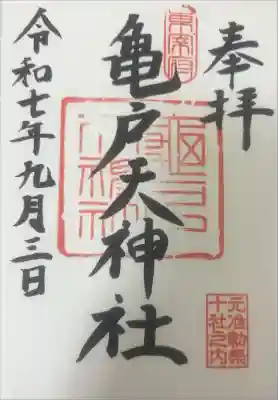 奉拝
東宰府
亀戸天神社
元准勅祭
十社之内
令和七年九月三日